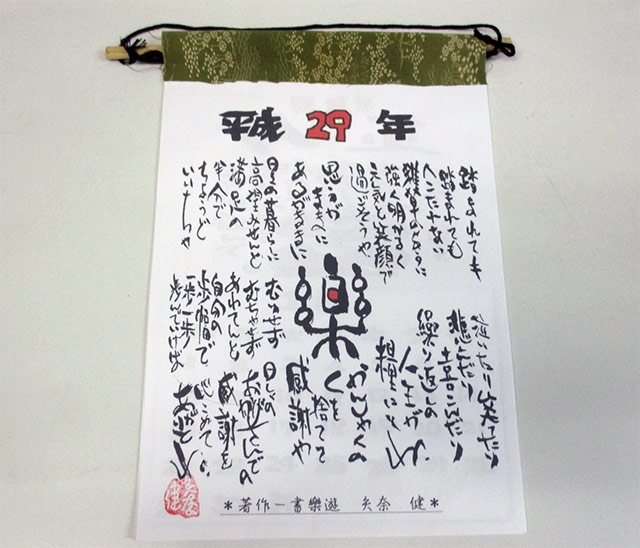 平成 29 年
踏まれても
踏まれても
へこたれない
雑草のように
強く明かるく
元気と笑顔で
過ごそうや
思うが
ままに
あるがままに
日々の暮らしに
高望みせんと
満足の
半分で
ちょうど
泣いたり笑ったり
悲んだり
喜こんだり
繰り返しの
人生が
かんしゃくの
くを捨てて
感謝や
楽
むりせず
むちゃせず
あわてんと
自分の
歩幅で
一歩一歩
歩んでいけば
日々の
感謝を
心こめて
＊著作一書樂遊 矢奈 健＊